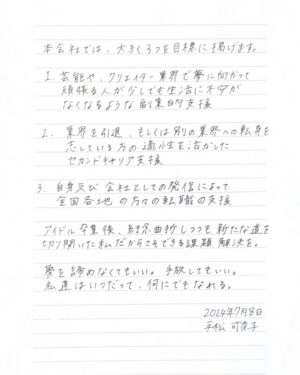 本会社では、大きく3つを目標に掲げます。
1. 芸能や、クリエイター業界で夢に向かって
頑張る人が少しでも生活に不安が
なくなるような副業的支援
2. 業界を引退、もしくは別の業界への転身を
志している方の適性を活かした
セカンドキャリア支援
3. 自身及び会社としての発信によって
全国各地の方々の転職の支援
アイドル卒業後、紆余曲折しつつも新たな道を
切り開いた私だからこそできる課題解決を。
夢を諦めなくてもいい。手放してもいい。
私達はいつだって、何にでもなれる。
2024年7月8日
平松 可奈子